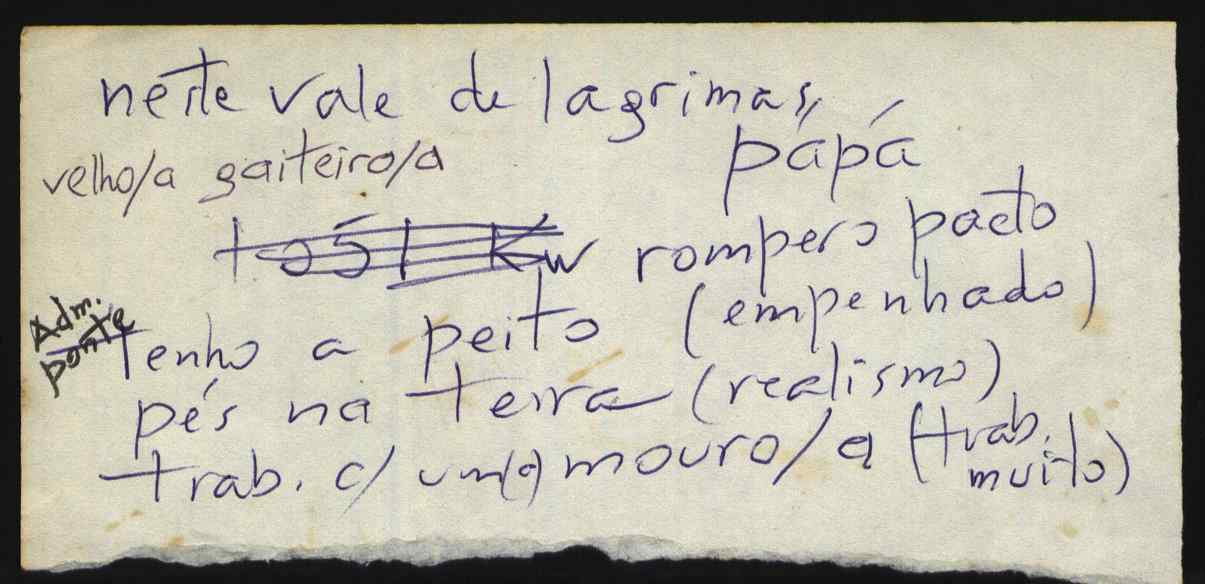 neste vale de lagrimas,
pápá
velho/a gaiteiro/a
rompero pacto
Adm.
ponte
Tenho a peito (empenhado)
pés na terra (realismo)
trab. c/ um(a) mouro/a (trab. muito)